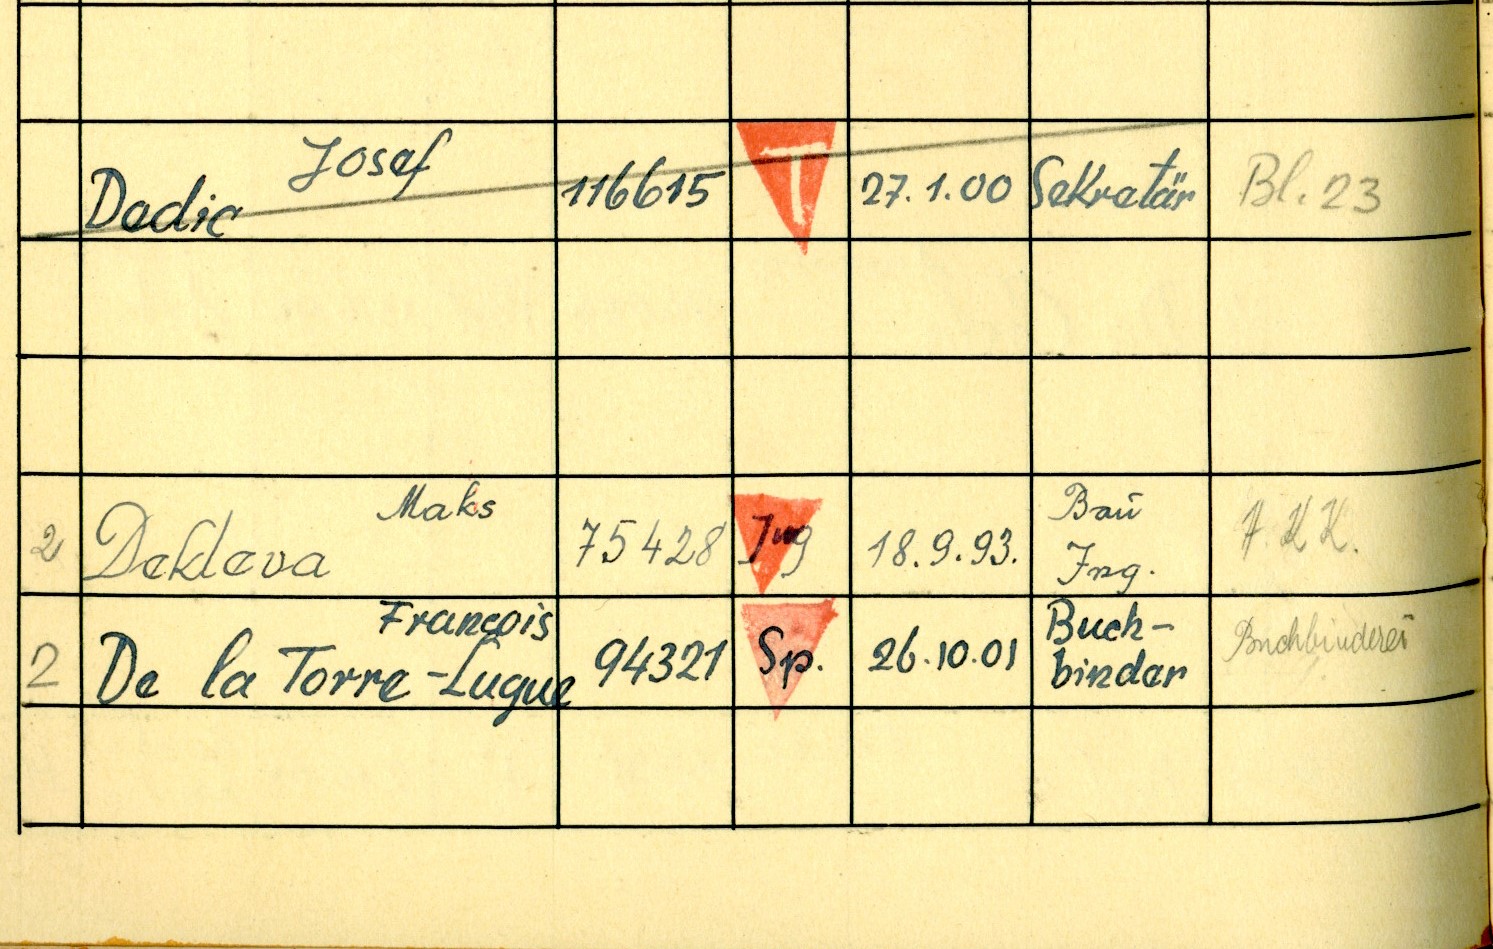 Josef
Dedic 116615 T 27.1.00 Sekretär Bl. 23
Maks
2 Dekleva 75428 Jug 18.9.93. Bau
Ing.
François
2 De la Torre-Luque 94321 Sp. 26.10.01 Buch-
binder Buchbinderei